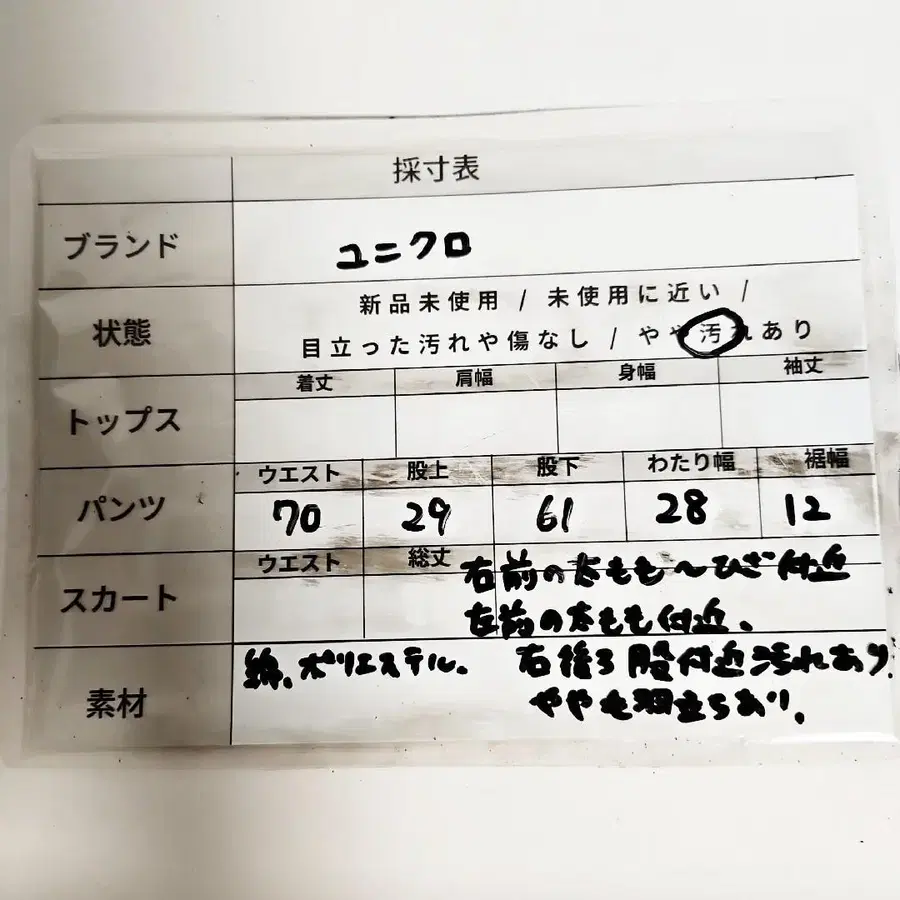 採寸表
ブランド ユニクロ
新品未使用 / 未使用に近い /
状態
目立った汚れや傷なし / やや汚れあり
着丈 肩幅 身幅 袖丈
トップス
ウエスト 股上 股下 わたり幅 裾幅
パンツ 70 29 61 28 12
ウエスト 総丈 右前の太もも〜ひざ付近
スカート 左前の太もも付近、
綿、ポリエステル。 右後ろ股付近汚れあり。
素材 やや毛羽立ちあり。